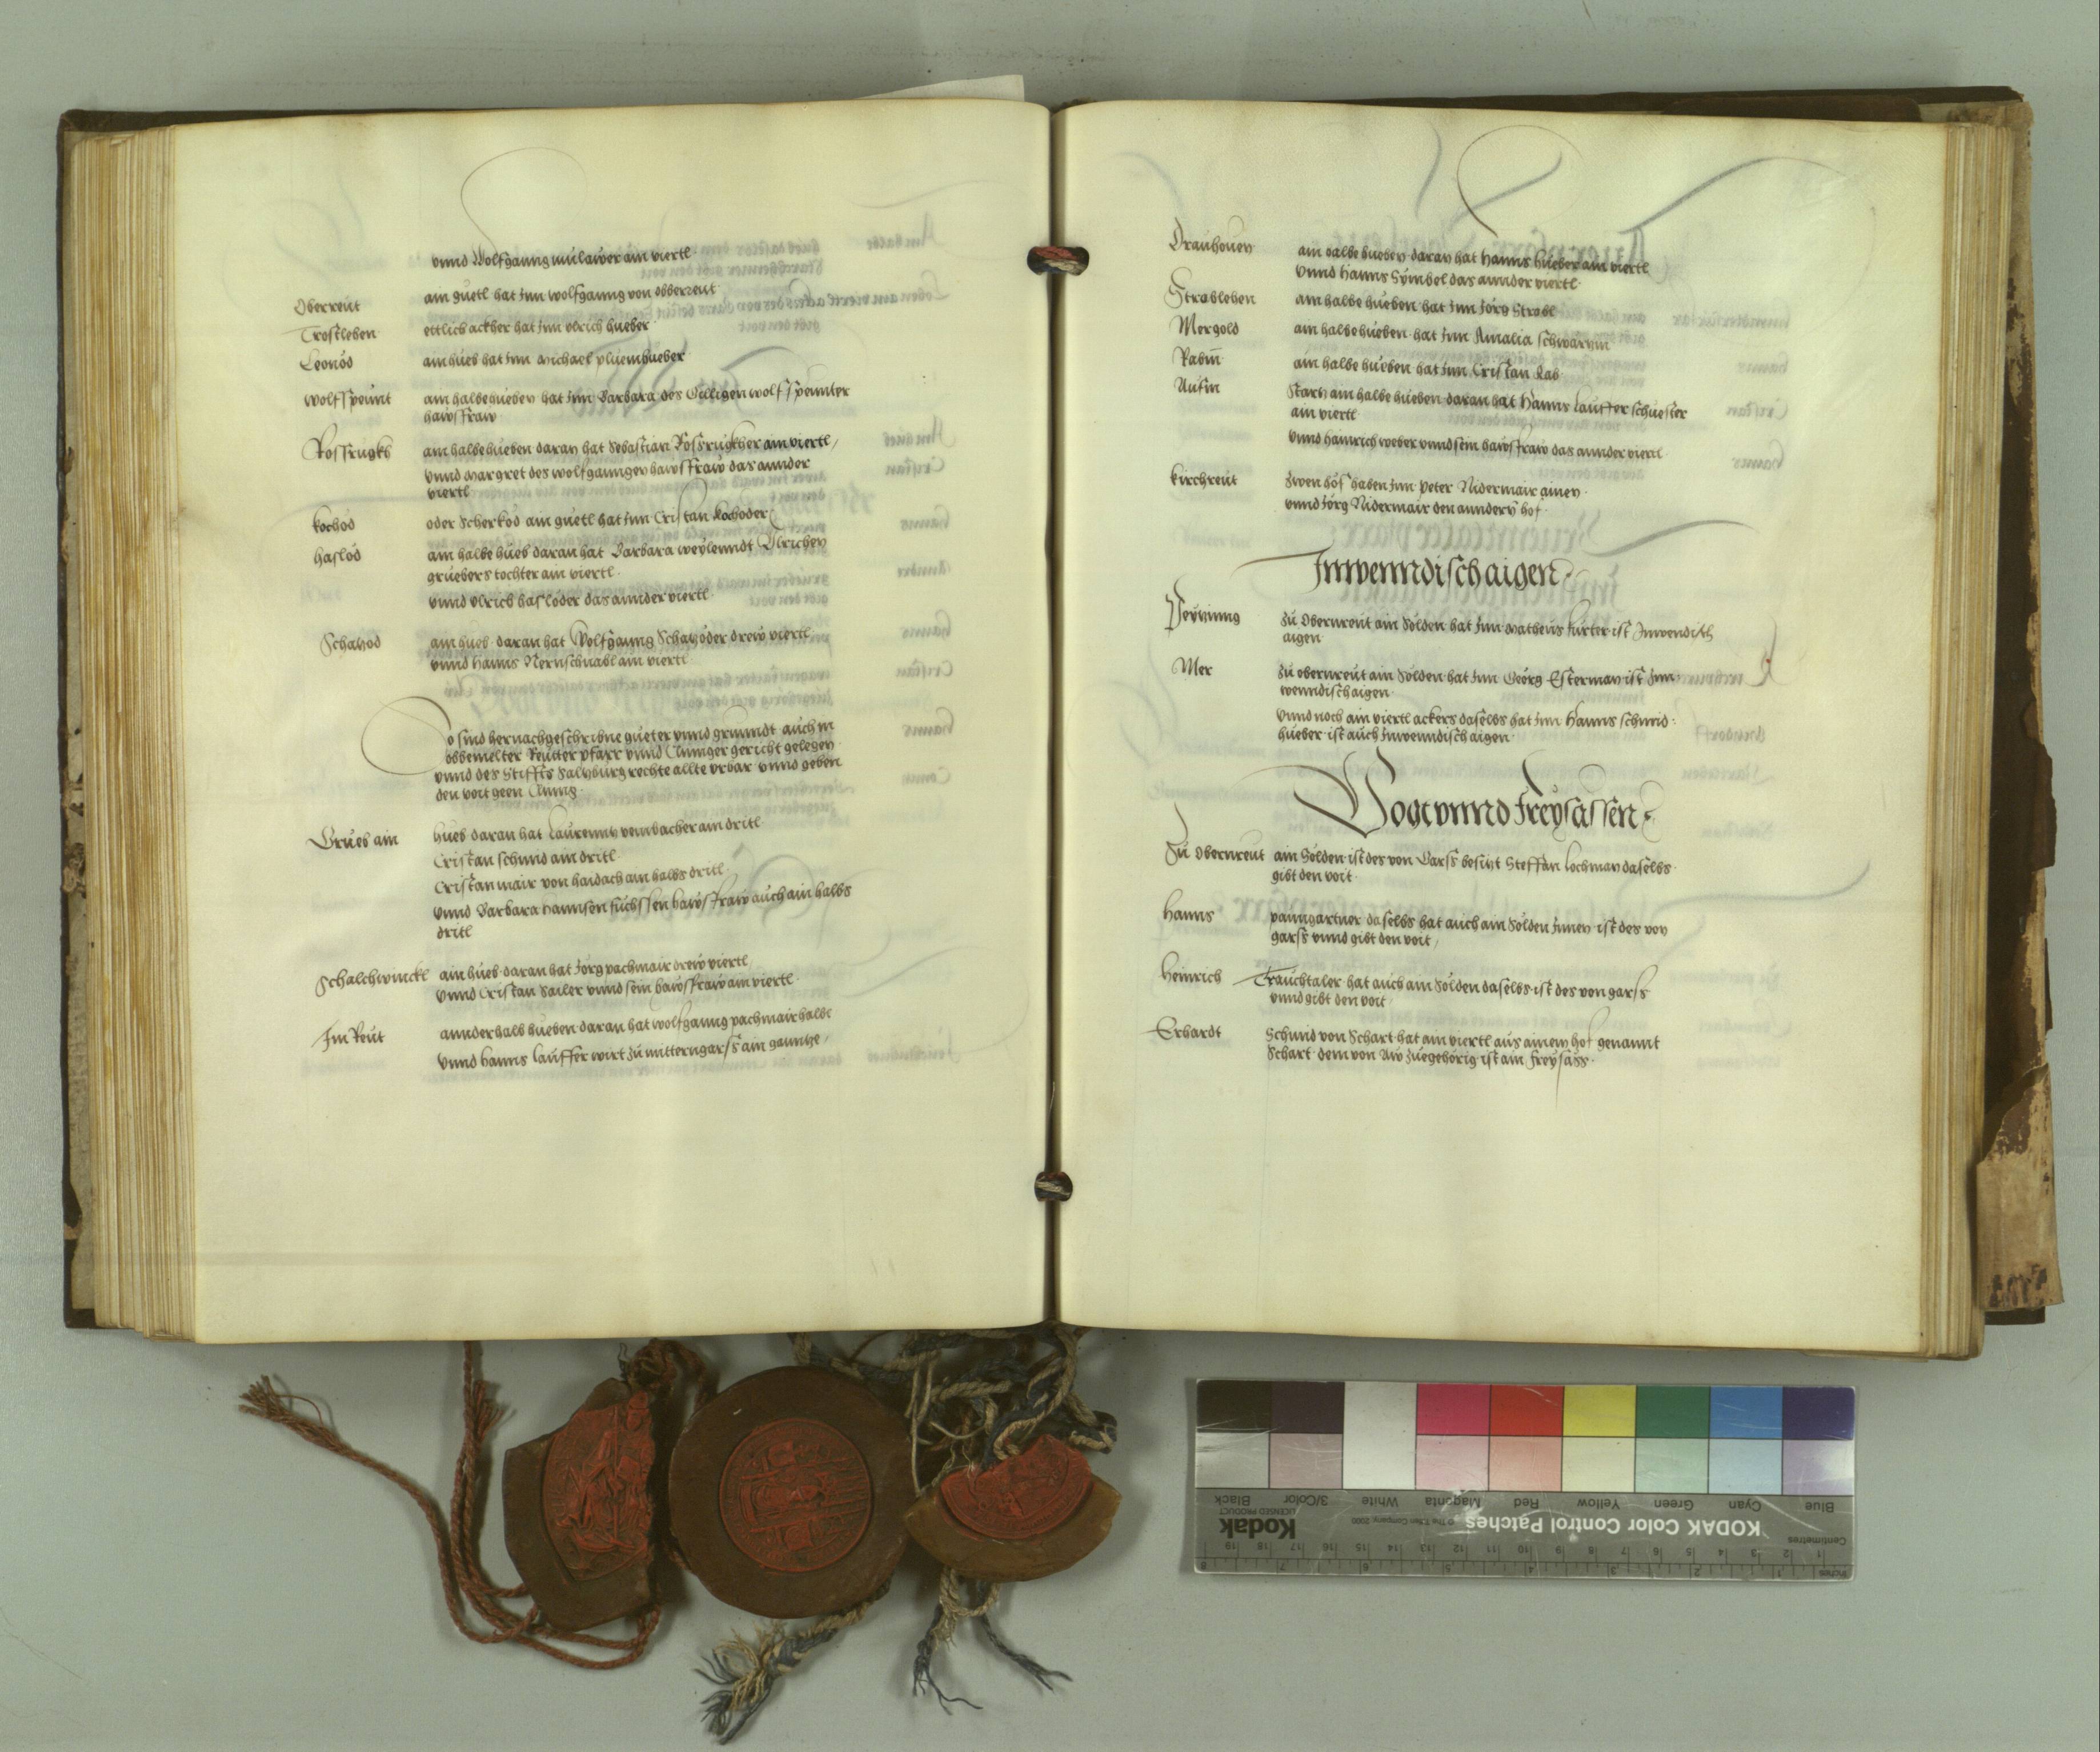 vnnd Wolfganng mülawer ain viertl
Oberreut ain guetl hat Jnn wolfganng von obberreut
Trostleben ettlich ackher hat Jnn vlrich hueber
Leonöd ain hueb hat Jnn Michael pluemhueber
wolfspeunt ain halbe hueben hat Jnn Barbara des Gilligen wolfspeunter
hawsfraw
Rossrugkh ain halbe hueben daran hat Sebastian Rossrugkher ain viertl /
vnnd Margret des wolfganngen hawsfraw das annder
viertl
kochöd oder Scherköd ain guetl hat Jnn Cristan kochöder
haslöd ain halbe hueb daran hat Barbara weylenndt Vlrichen
gruebers tochter ain viertl
vnnd Vlrich haslöder das annder viertl
Schatzöd ain hueb daran hat Wolfganng Schatzöder drew viertl
vnnd Hanns Nernschnabl ain viertl
So sind hernachgeschribne güeter vnnd grunndt auch in
obbemelter Reutter pfarr vnnd Clinger gericht gelegen
vnnd des Stiffts Saltzburg rechte allte vrbar vnnd geben
den voit geen Cling
Grueb ain hueb daran hat Laurenntz vembacher ain dritl
Cristan schmid ain dritl
Cristan mair von haidach ain halbs dritl
vnnd Barbara Hannsen füchssen hawsfraw auch ain halbs
dritl
Schalchwinckl ain hueb daran hat Jörg pachmair drew viertl
vnnd Cristan Sailer vnnd sein hawsfraw ain viertl
Jm Reut annderhalb hueben daran hat wolfganng pachmair halbe
vnnd hanns lauffer wirt zu mitterngarss ain ganntze /
Drauhouen ain halbe hueben daran hat Hanns hueber ain viertl
vnnd Hanns Symbel das annder viertl
Strobleben ain halbe hueben hat Jnn Jörg Strobl
Mergold ain halbe hueben hat Jnn Amalia schwärtzin
Rabin ain halbe hueben hat Jnn Cristan Rab
Aufm Startz ain halbe hueben daran hat Hanns lauffer schuester
ain viertl
vnnd hainrich weber vnnd sein hawsfraw das annder viertl
kirchreut zwen höf haben Jnn Peter Nidermair ainen
vnnd Jörg Nidermair den anndern hof
Jnwenndisch aigen
Peytzinng zu Obernreut ain Sölden hat Jnn Matheus kürter ist Jnwendisch
aigen
Mer zu obernreut ain Sölden hat Jnn Georg Esterman ist Jnn
wenndisch aigen
vnnd noch ain viertl ackers daselbs hat Jnn Hanns schmid
hueber ist auch Jnwenndisch aigen
Vogt vnnd freysassen
Zu Obernreut ain Sölden ist des von Garss besitzt Steffan Lochman daselbs
gibt den voit
Hanns paumgartner daselbs hat auch ain Sölden Jnnen ist des von
garss vnnd gibt den voit /
Heinrich Trauchtaler hat auch ain Sölden daselbs ist des von garss
vnnd gibt den voit
Erhardt Schmid von Schart hat ain viertl aus ainem hof genannt
Schart dem von Aw zuegehörig ist ain freysäss
KODAK Color Control Patches
Kodak
LICENSED PRODUCT
Blue Cyan Green Yellow Red Magenta White 3/Color Black
Centimetres
Inches